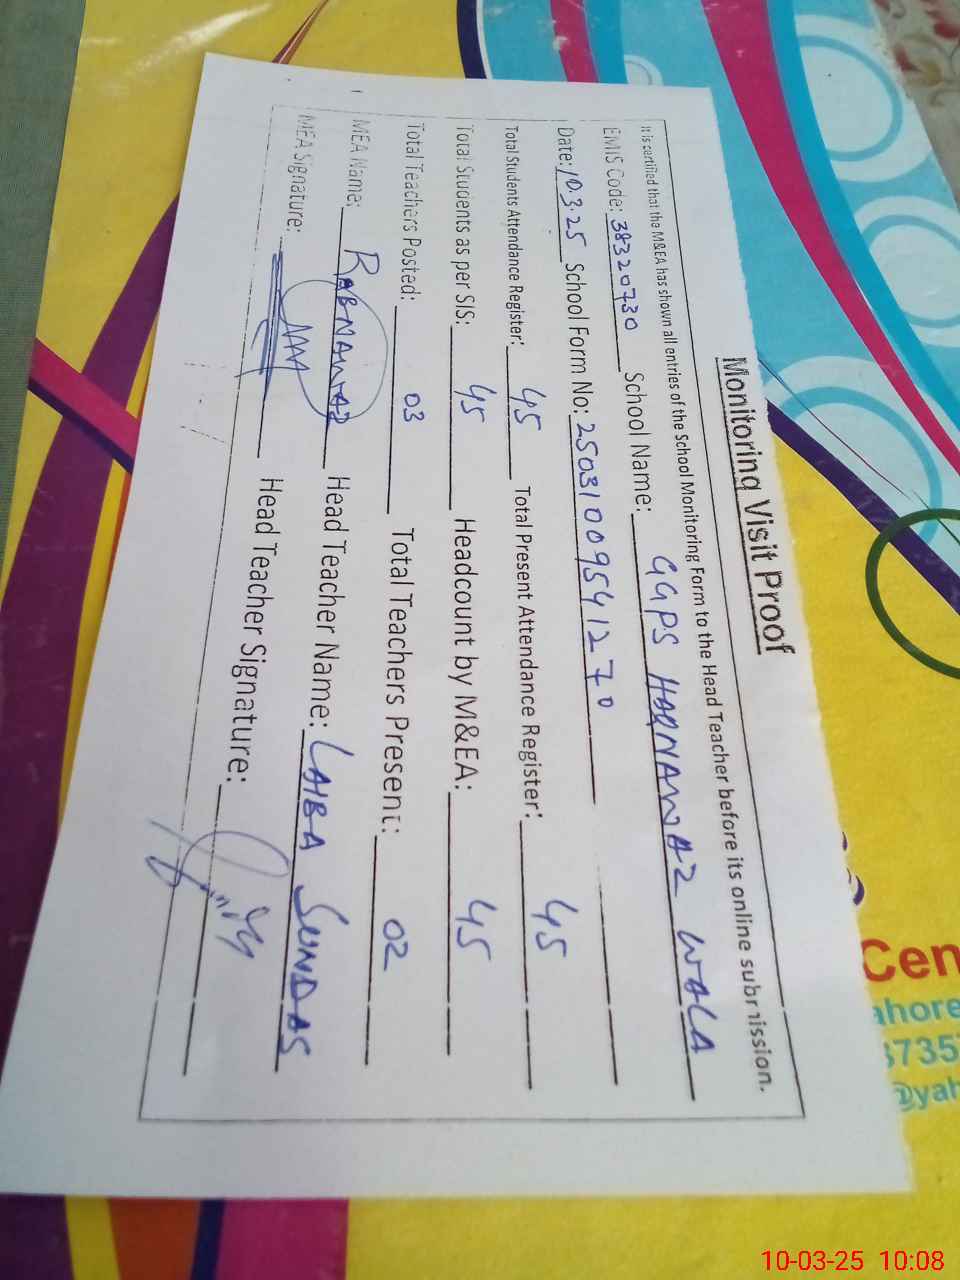 Monitoring Visit Proof
It is certified that the M&EA has shown all entries of the School Monitoring Form to the Head Teacher before its online submission.
EMIS Code: 38320730 School Name: GGPS HAQNAWAZ WALA
Date: 10.3.25 School Form No: 25031009541270
Total Students Attendance Register: 45 Total Present Attendance Register: 45
Total Students as per SIS: 45 Headcount by M&EA: 45
Total Teachers Posted: 03 Total Teachers Present: 02
MEA Name: RABNAWAZ Head Teacher Name: LAIBA SUNDAS
MEA Signature: Head Teacher Signature:
Cen
ahore
3735
@yah
10-03-25 10:08